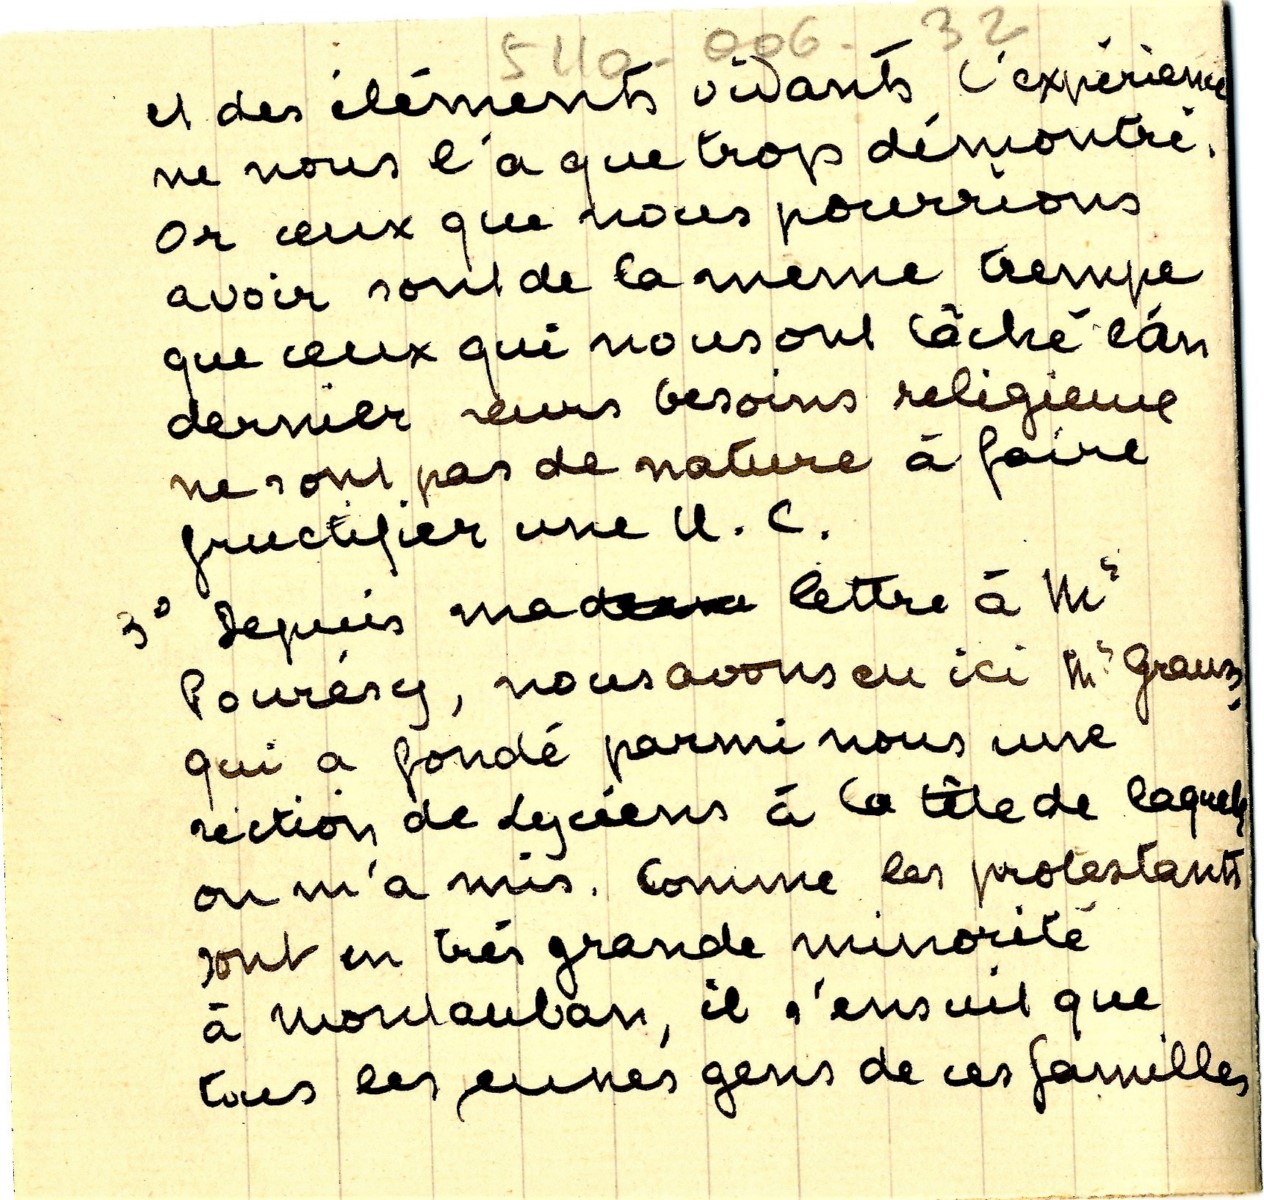 5110-006-32
et des éléments vivants l'expérience
ne nous l'a que trop démontré.
Or ceux que nous pourrions
avoir sont de la meme trempe
que ceux qui nous ont lâché l'an
dernier leurs besoins religieux
ne sont pas de nature à faire
fructifier une U. C.
3° Depuis ma lettre à Mr
Pourésy, nous avons eu ici Mr Grauz,
qui a fondé parmi nous une
section de Lycéens à la tête de laquelle
on m'a mis. Comme les protestants
sont en très grande minorité
à Montauban, il s'ensuit que
tous les jeunes gens de ces familles